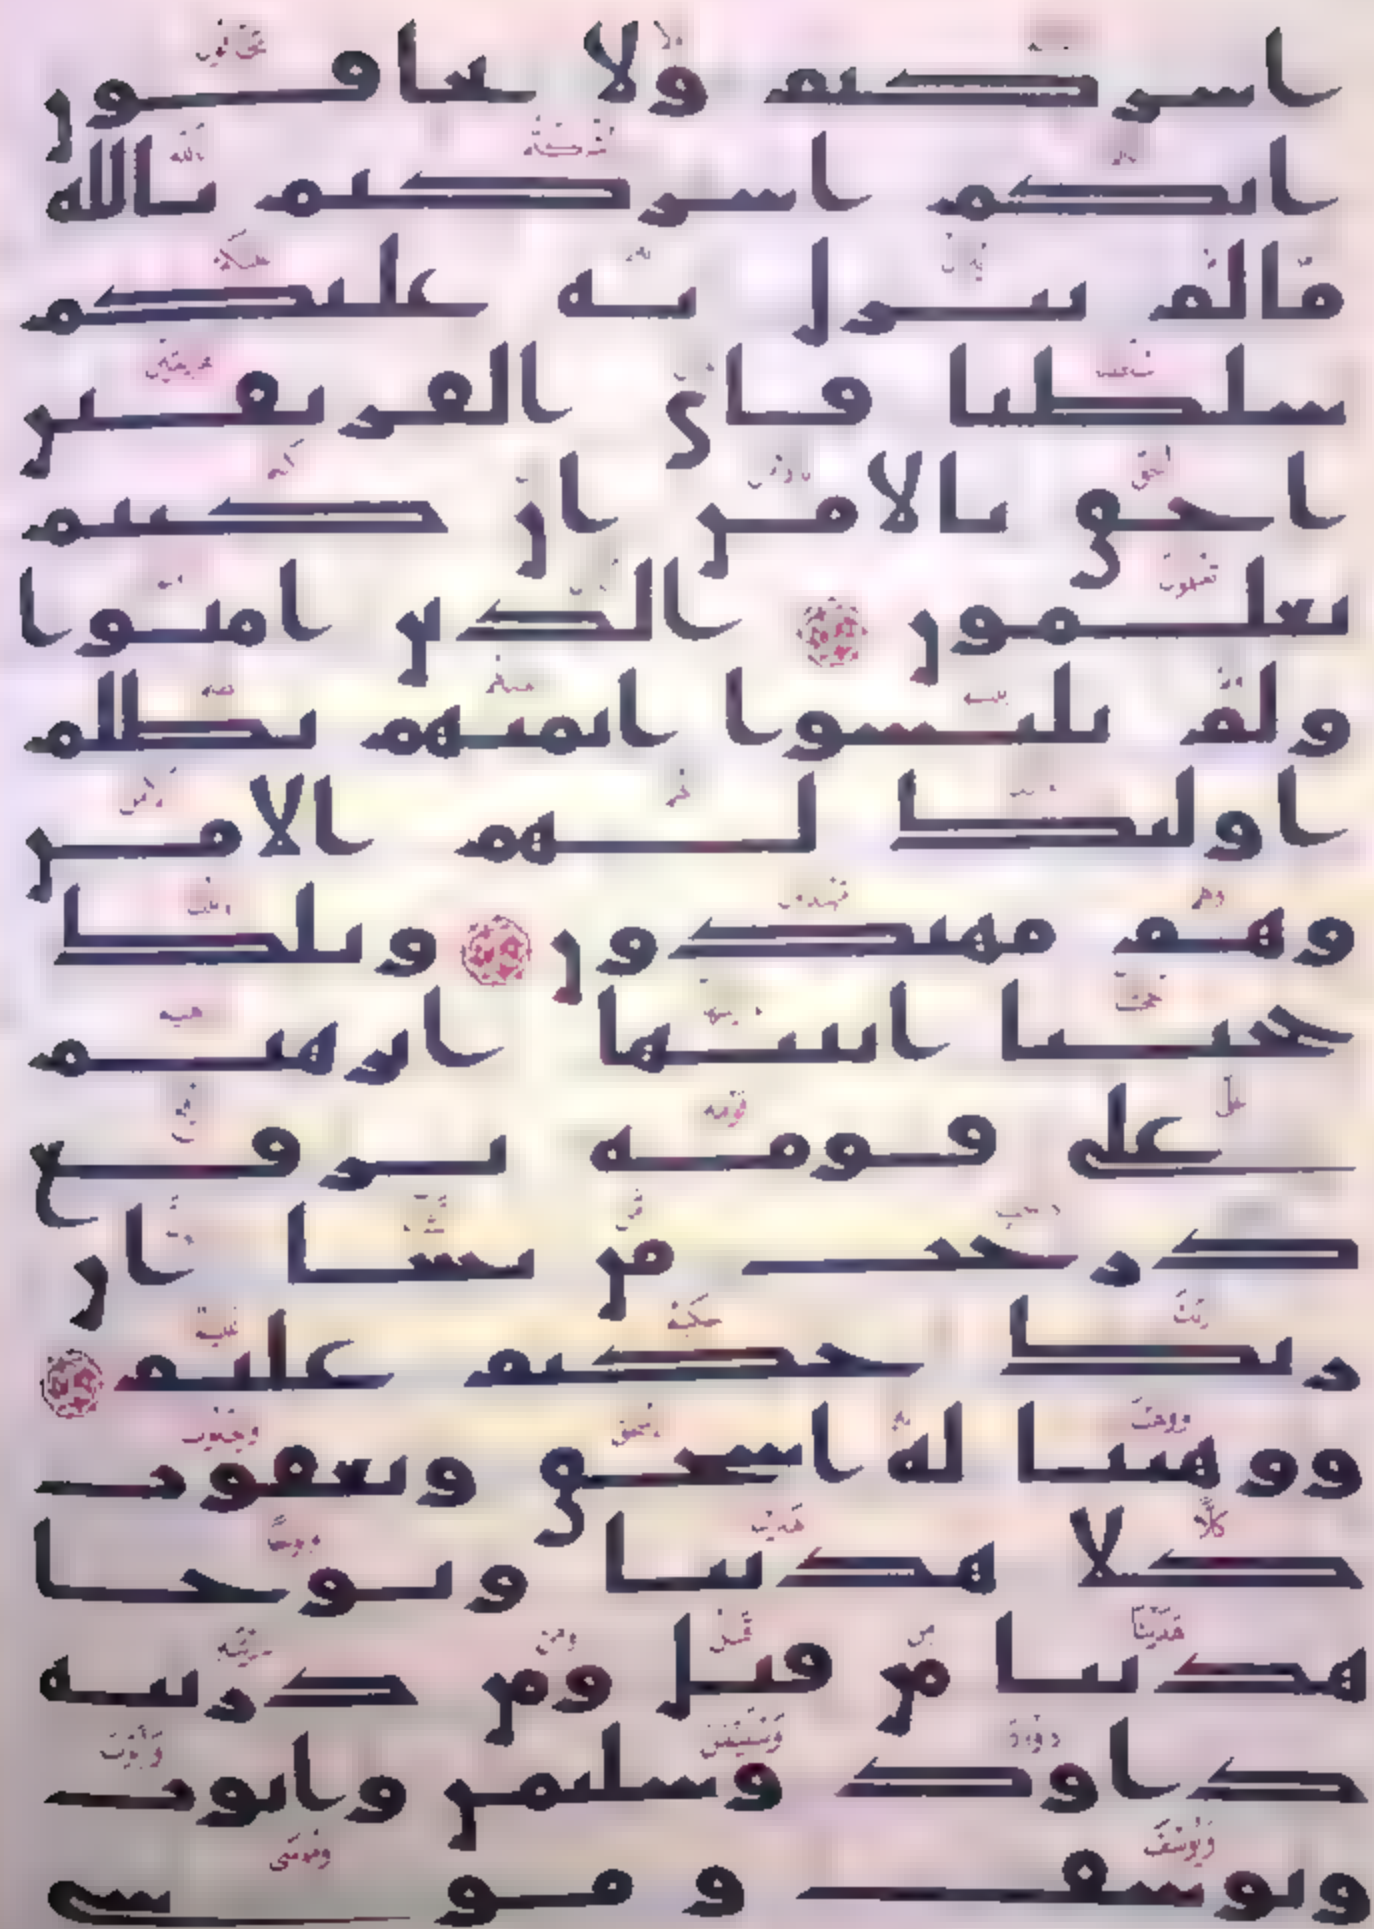 اسركتم ولا تخافون
انكم اشركتم بالله
ما لم ينزل به عليكم
سلطنا فاي الفريقين
احق بالامن ان كنتم
تعلمون الذين امنوا
ولم يلبسوا ايمنهم بظلم
اوليك لهم الامن
وهم مهتدون وتلك
حجتنا اتينها ابرهيم
على قومه نرفع
درجت من نشا ان
ربك حكيم عليم
ووهبنا له اسحق ويعقوب
كلا هدينا ونوحا
هدينا من قبل ومن ذريته
داود وسليمن وايوب
ويوسف وموسى